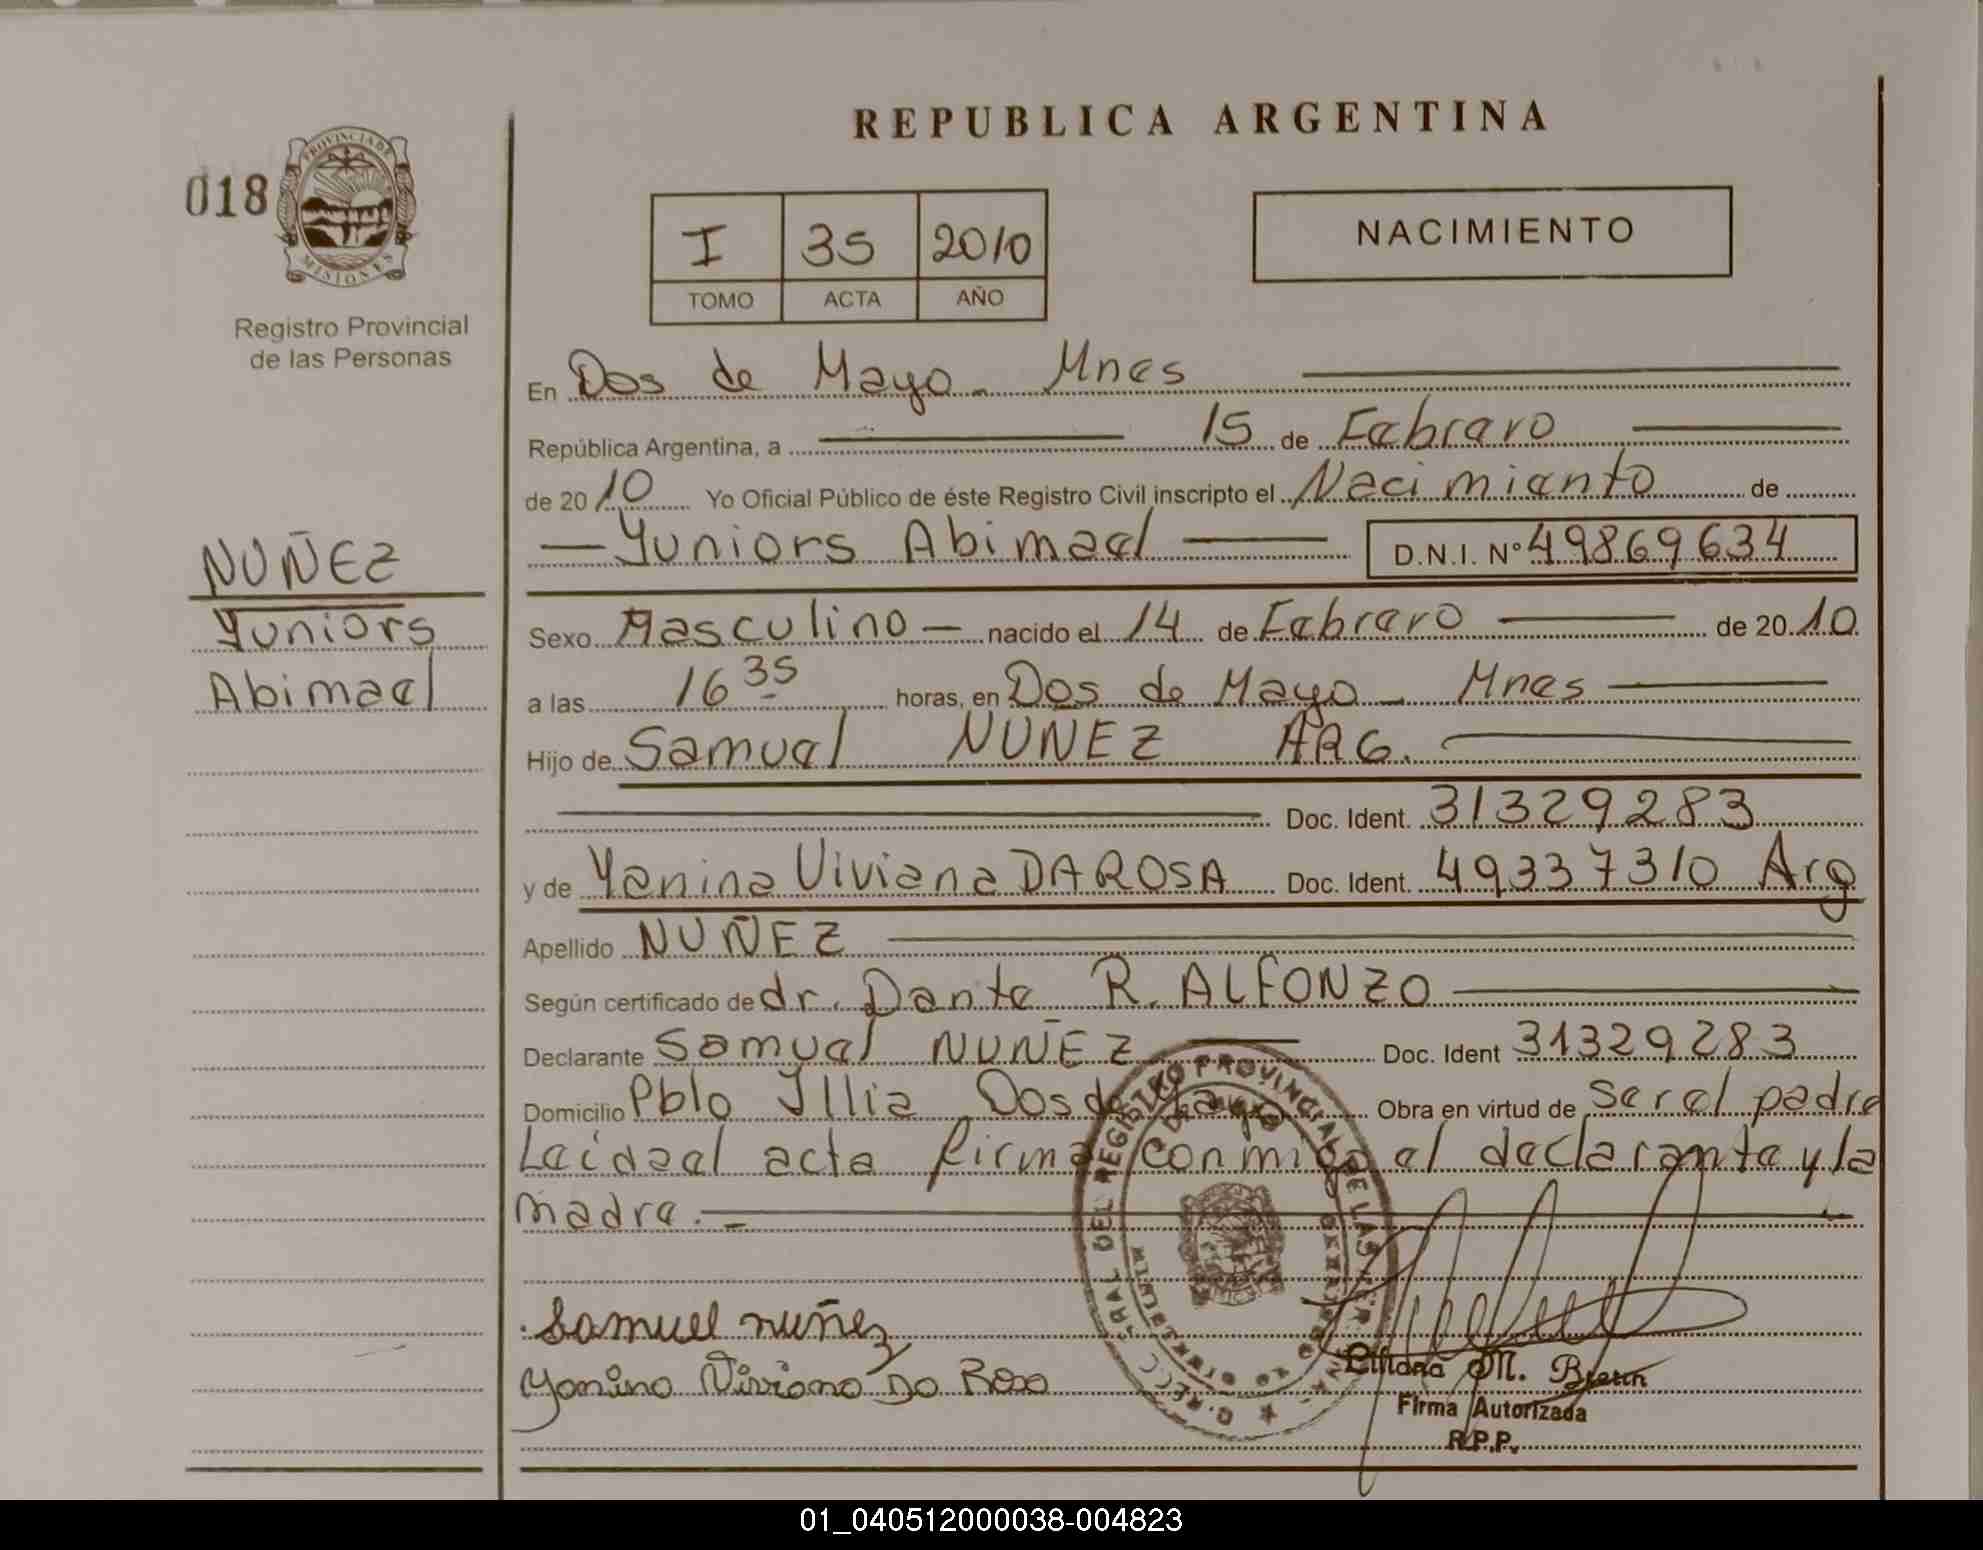 REPUBLICA ARGENTINA
018
PROVINCIA DE
MISIONES
Registro Provincial
de las Personas
I 35 2010
TOMO ACTA AÑO
NACIMIENTO
NUÑEZ
Yuniors
Abimael
En Dos de Mayo - Mnes
República Argentina, a 15 de Febrero
de 2010 Yo Oficial Público de éste Registro Civil inscripto el Nacimiento de
Yuniors Abimael D.N.I. Nº 49869634
Sexo Masculino nacido el 14 de Febrero de 2010
a las 16 35 horas, en Dos de Mayo - Mnes
Hijo de Samuel NUÑEZ ARG.
Doc. Ident. 31329283
y de Yanina Viviana DA ROSA Doc. Ident. 49337310 Arg
Apellido NUÑEZ
Según certificado de dr. Dante R. ALFONZO
Declarante Samuel NUÑEZ Doc. Ident 31329283
Domicilio Pblo Illia Dos de Mayo Obra en virtud de ser el padre
Leída el acta firma conmigo el declarante y la
madre.-
Samuel nuñez
Yanina Viviana Da Rosa
REGISTRO PROVINCIAL DE LAS
Liliana M.
Firma Autorizada
R.P.P.
01_040512000038-004823